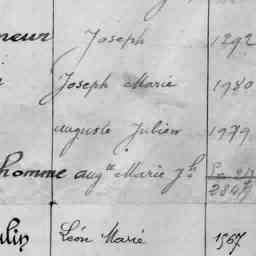 neur Joseph 1292
Joseph Marie 1980
auguste Julien 1979
homme augte Marie Jh 2847
lin Léon Marie 1567